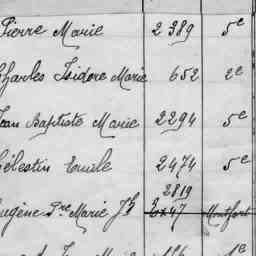 Pierre Marie 2389 5e
Charles Isidore Marie 652 2e
Jean Baptiste Marie 2294 5e
Célestin Emile 2474 5e
2819
Eugène Pre Marie Jh Montfort